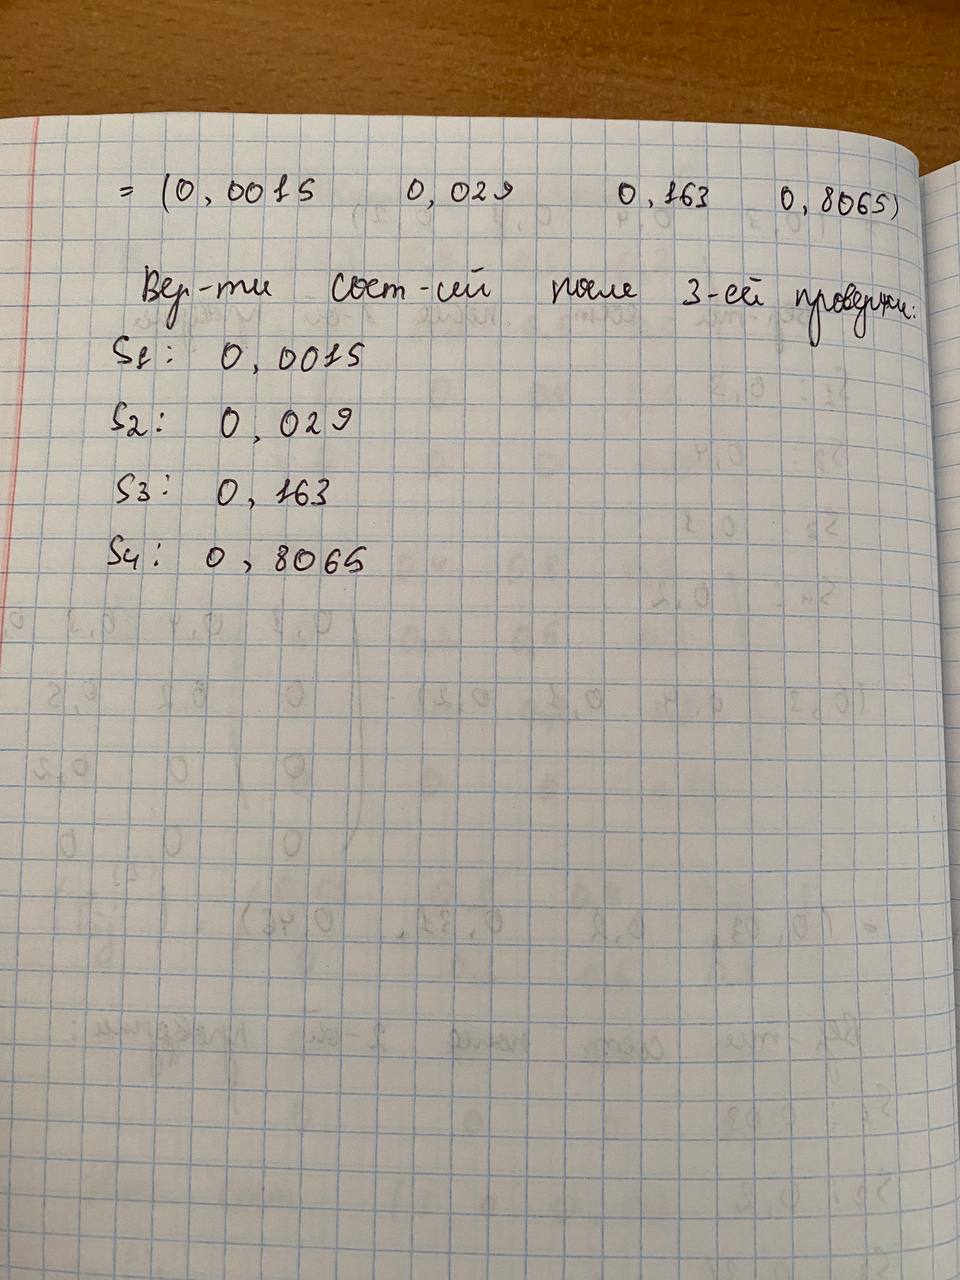 = (0,0015 0,029 0,163 0,8065)
Вер-ти сост-ий после 3-ей проверки:
S1: 0,0015
S2: 0,029
S3: 0,163
S4: 0,8065